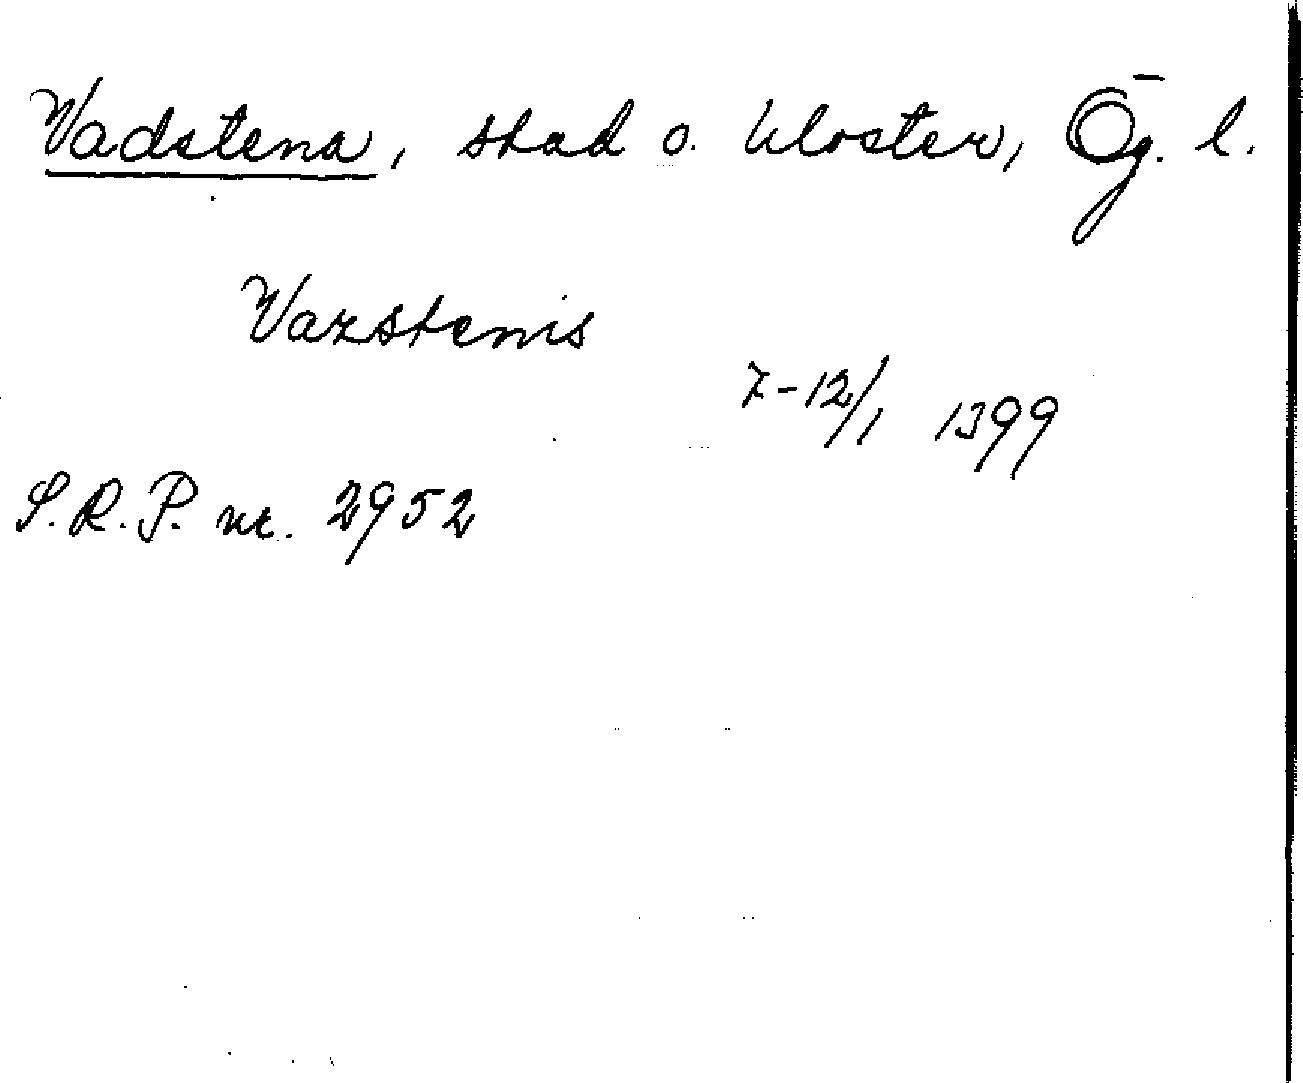 Vadstena, stad o. kloster, Ög. l.
Vazstenis
7-12/1 1399
S.R.P. nr. 2952